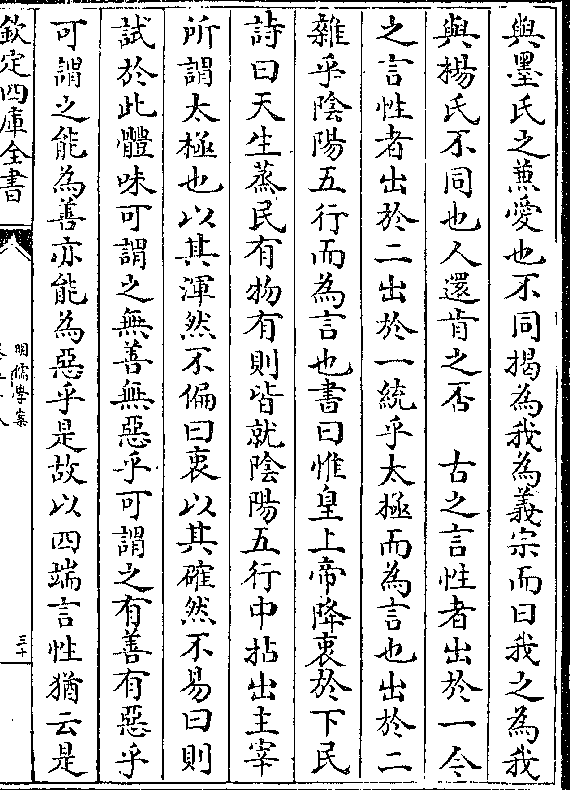 與墨氏之蒹愛也不同揭為我為義宗而曰我之為我
與楊氏不同也人還肯之否　古之言性者出於一今
之言性者出於二出於一統乎太極而為言也出於二
雜乎陰陽五行而為言也書曰惟皇上帝降衷於下民
詩曰天生蒸民有物有則皆就陰陽五行中拈出主宰
所謂太極也以其渾然不偏曰衷以其確然不易曰則
試於此體味可謂之無善無惡乎可謂之有善有惡乎
可謂之能為善亦能為惡乎是故以四端言性猶云是
欽定四庫全書
明儒學案
三十